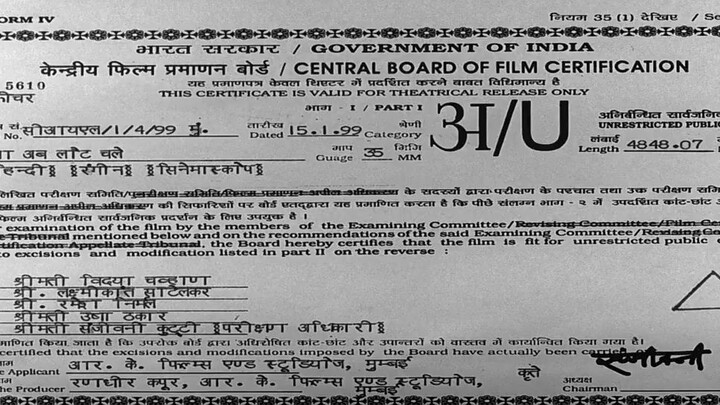 ORM IV
नियम 35 (1) देखिए / Se
भारत सरकार / GOVERNMENT OF INDIA
केन्द्रीय फिल्म प्रमाणन बोर्ड / CENTRAL BOARD OF FILM CERTIFICATION
5610
यह प्रमाणपत्र केवल थिएटर में प्रदर्शित करने बाबत विधिमान्य है
THIS CERTIFICATE IS VALID FOR THEATRICAL RELEASE ONLY
भाग - I / PART I
सं सीआयएल/1/4/99 मुं. तारीख 15.1.99 श्रेणी अ/U अनिर्बन्धित सार्वजनि
No. Dated Category UNRESTRICTED PUBLI
अब लौट चले माप 35 मिमि लंबाई 4848.07
Guage MM Length
हिन्दी रंगीन सिनेमास्कोप
लिखित परीक्षण समिति/पुनरीक्षण समिति/फिल्म प्रमाणन अपील अधिकरण के सदस्यों द्वारा परीक्षण के पश्चात तथा उक्त परीक्षण समि
फिल्म प्रमाणन अपील अधिकरण की सिफारिशों पर बोर्ड एतद्द्वारा यह प्रमाणित करता है कि पीछे संलग्न भाग - २ में उपदर्शित कांट-छांट
फिल्म अनिर्बन्धित सार्वजनिक प्रदर्शन के लिए उपयुक्त है ।
examination of the film by the members of the Examining Committee/Revising Committee/Film Ce
Tribunal mentioned below and on the recommendations of the said Examining Committee/Revising Co
tification Appellate Tribunal, the Board hereby certifies that the film is fit for unrestricted public
to excisions and modification listed in part II on the reverse :
श्रीमती विद्या चव्हाण
श्री. लक्ष्मीकांत साटेलकर
श्री. रमेश निर्मल
श्रीमती उषा ठाकर
श्रीमती संजीवनी कुट्टी परीक्षण अधिकारी
माणित किया जाता है कि उपरोक्त बोर्ड द्वारा अधिरोपित कांट-छांट और उपान्तरों को वास्तव में कार्यान्वित किया गया है।
certified that the excisions and modifications imposed by the Board have actually been carried
Applicant आर. के. फिल्म्स एण्ड स्टूडियोज, मुम्बई
the Producer रणधीर कपूर, आर. के. फिल्म्स एण्ड स्टूडियोज, मुम्बई
कृते अध्यक्ष
Chairman